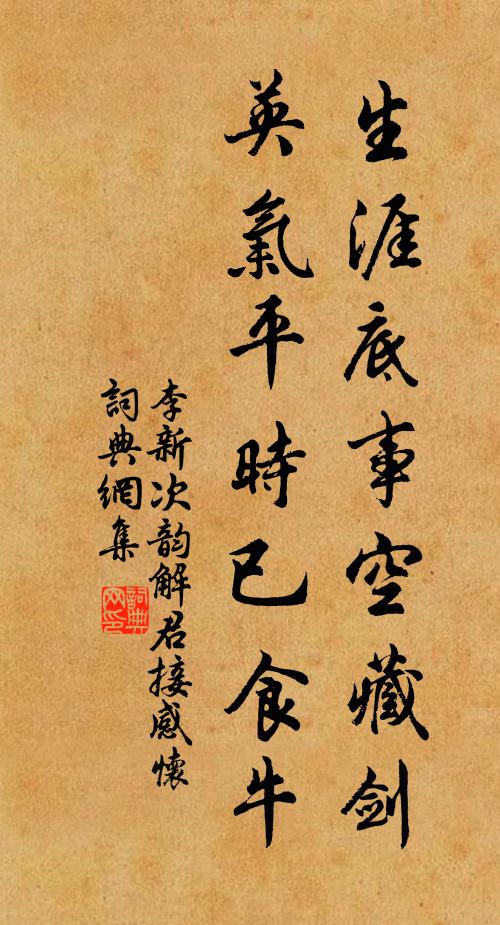 生涯底事空藏劍
英氣平時已食牛
李新次韵解君接感懷
詞典網集
詞典
网印